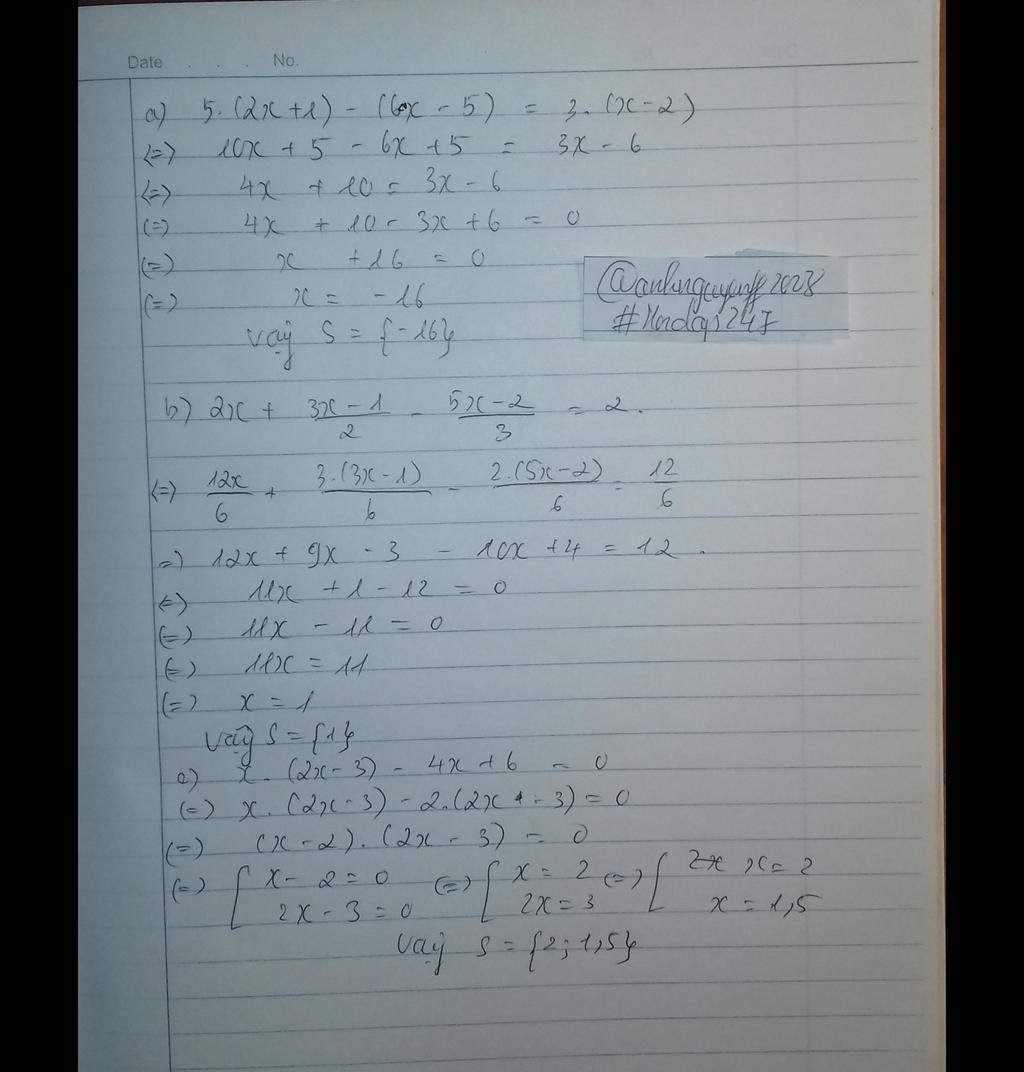 Date . . . No.
a) 5.(2x+1) - (6x - 5) = 3.(x-2)
(=) 10x + 5 - 6x + 5 = 3x - 6
(=) 4x + 10 = 3x - 6
(=) 4x + 10 - 3x + 6 = 0
(=) x + 16 = 0
(=) x = -16
Vậy S = {-16}
#Hoidap247
b) 2x + (3x-1)/2 - (5x-2)/3 = 2.
(=) 12x/6 + 3.(3x-1)/6 - 2.(5x-2)/6 = 12/6
=) 12x + 9x - 3 - 10x + 4 = 12.
(=) 11x + 1 - 12 = 0
(=) 11x - 11 = 0
(=) 11x = 11
(=) x = 1
Vậy S = {1}
c) x.(2x-3) - 4x + 6 = 0
(=) x.(2x-3) - 2.(2x - 3) = 0
(=) (x-2).(2x-3) = 0
(=) [ x - 2 = 0 (=) [ x = 2 (=) [ x = 2
2x - 3 = 0 2x = 3 x = 1,5
Vậy S = {2; 1,5}